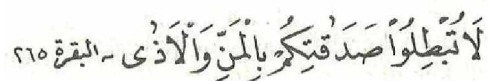 لَا تُبْطِلُوْا صَدَقٰتِكُمْ بِالْمَنِّ وَالْاَذٰى - البقرة ٢٦٥